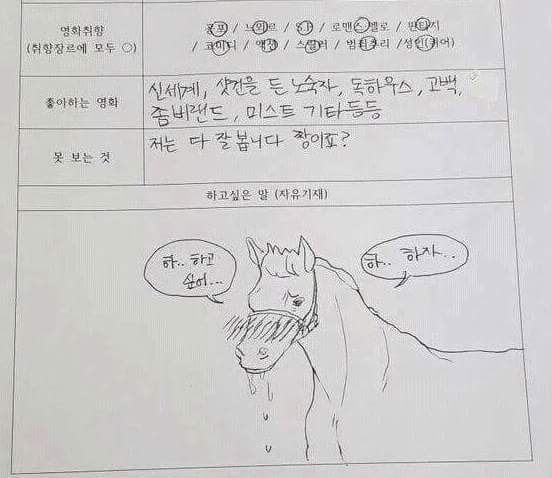 영화취향
(취향장르에 모두 ○)
공포 / 느와르 / SF / 로맨스 멜로 / 판타지
/ 코미디 / 액션 / 스릴러 / 범죄추리 /성인(퀴어)
좋아하는 영화
신세계, 샷건을 든 노숙자, 독하우스, 고백,
좀비랜드, 미스트 기타등등
못 보는 것
저는 다 잘 봅니다 짱이죠?
하고싶은 말 (자유기재)
하.. 하고
싶어...
하.. 하자..